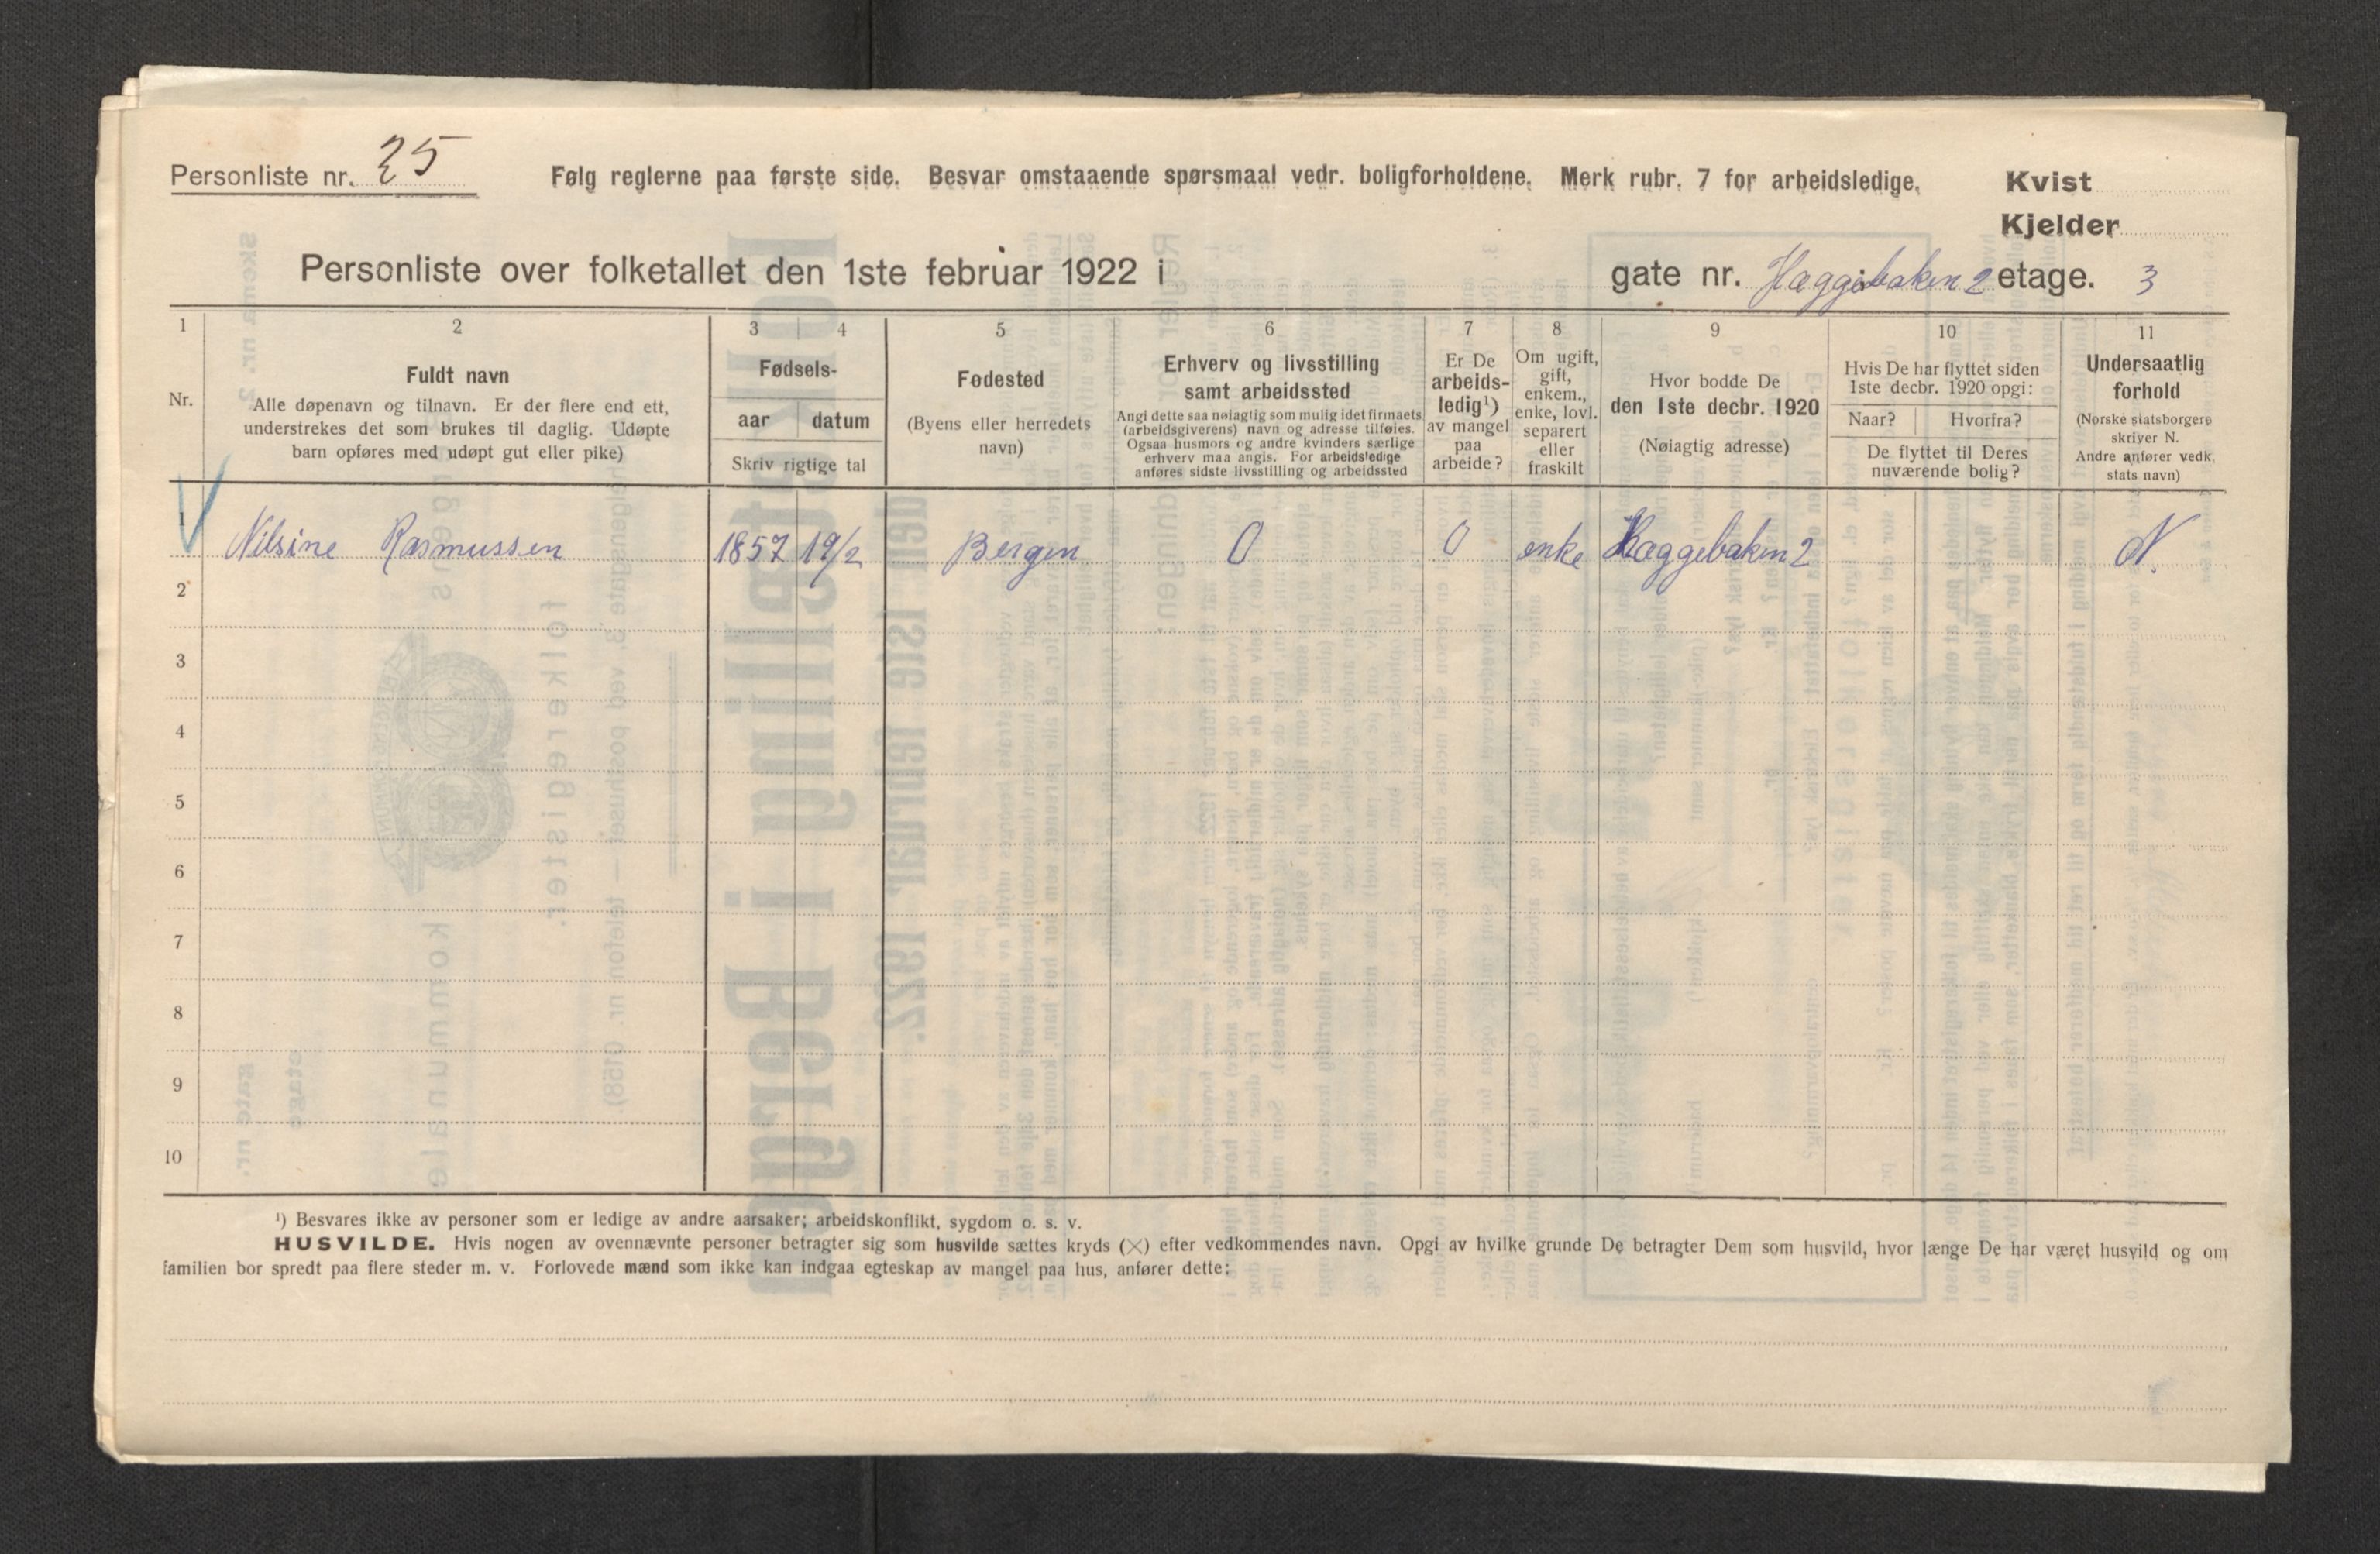 Personliste nr. 25
Følg reglerne paa første side. Besvar omstaaende spørsmaal vedr. boligforholdene. Merk rubr. 7 for arbeidsledige.
Kvist
Kjelder
Personliste over folketallet den 1ste februar 1922 i gate nr. Hæggebakken 2 etage. 3
1 2 3 4 5 6 7 8 9 10 11
Nr.
Fuldt navn
Alle døpenavn og tilnavn. Er der flere end ett,
understrekes det som brukes til daglig. Udøpte
barn opføres med udøpt gut eller pike)
Fødsels-
aar datum
Skriv rigtige tal
Fødested
(Byens eller herredets
navn)
Erhverv og livsstilling
samt arbeidssted
Angi dette saa nøiagtig som mulig idet firmaets
(arbeidsgiverens) navn og adresse tilføies.
Ogsaa husmors og andre kvinders særlige
erhverv maa angis. For arbeidsledige
anføres sidste livsstilling og arbeidssted
Er De
arbeids-
ledig¹)
av mangel
paa
arbeide?
Om ugift,
gift,
enkem.,
enke, lovl.
separert
eller
fraskilt
Hvor bodde De
den 1ste decbr. 1920
(Nøiagtig adresse)
Hvis De har flyttet siden
1ste decbr. 1920 opgi:
Naar? Hvorfra?
De flyttet til Deres
nuværende bolig?
Undersaatlig
forhold
(Norske statsborgere
skriver N.
Andre anfører vedk.
stats navn)
1 Nilsine Rasmussen 1857 19/2 Bergen 0 0 enke Hæggebaken 2 N.
2
3
4
5
6
7
8
9
10
¹) Besvares ikke av personer som er ledige av andre aarsaker; arbeidskonflikt, sygdom o. s. v.
HUSVILDE. Hvis nogen av ovennævnte personer betragter sig som husvilde sættes kryds (×) efter vedkommendes navn. Opgi av hvilke grunde De betragter Dem som husvild, hvor længe De har været husvild og om
familien bor spredt paa flere steder m. v. Forlovede mænd som ikke kan indgaa egteskap av mangel paa hus, anfører dette: